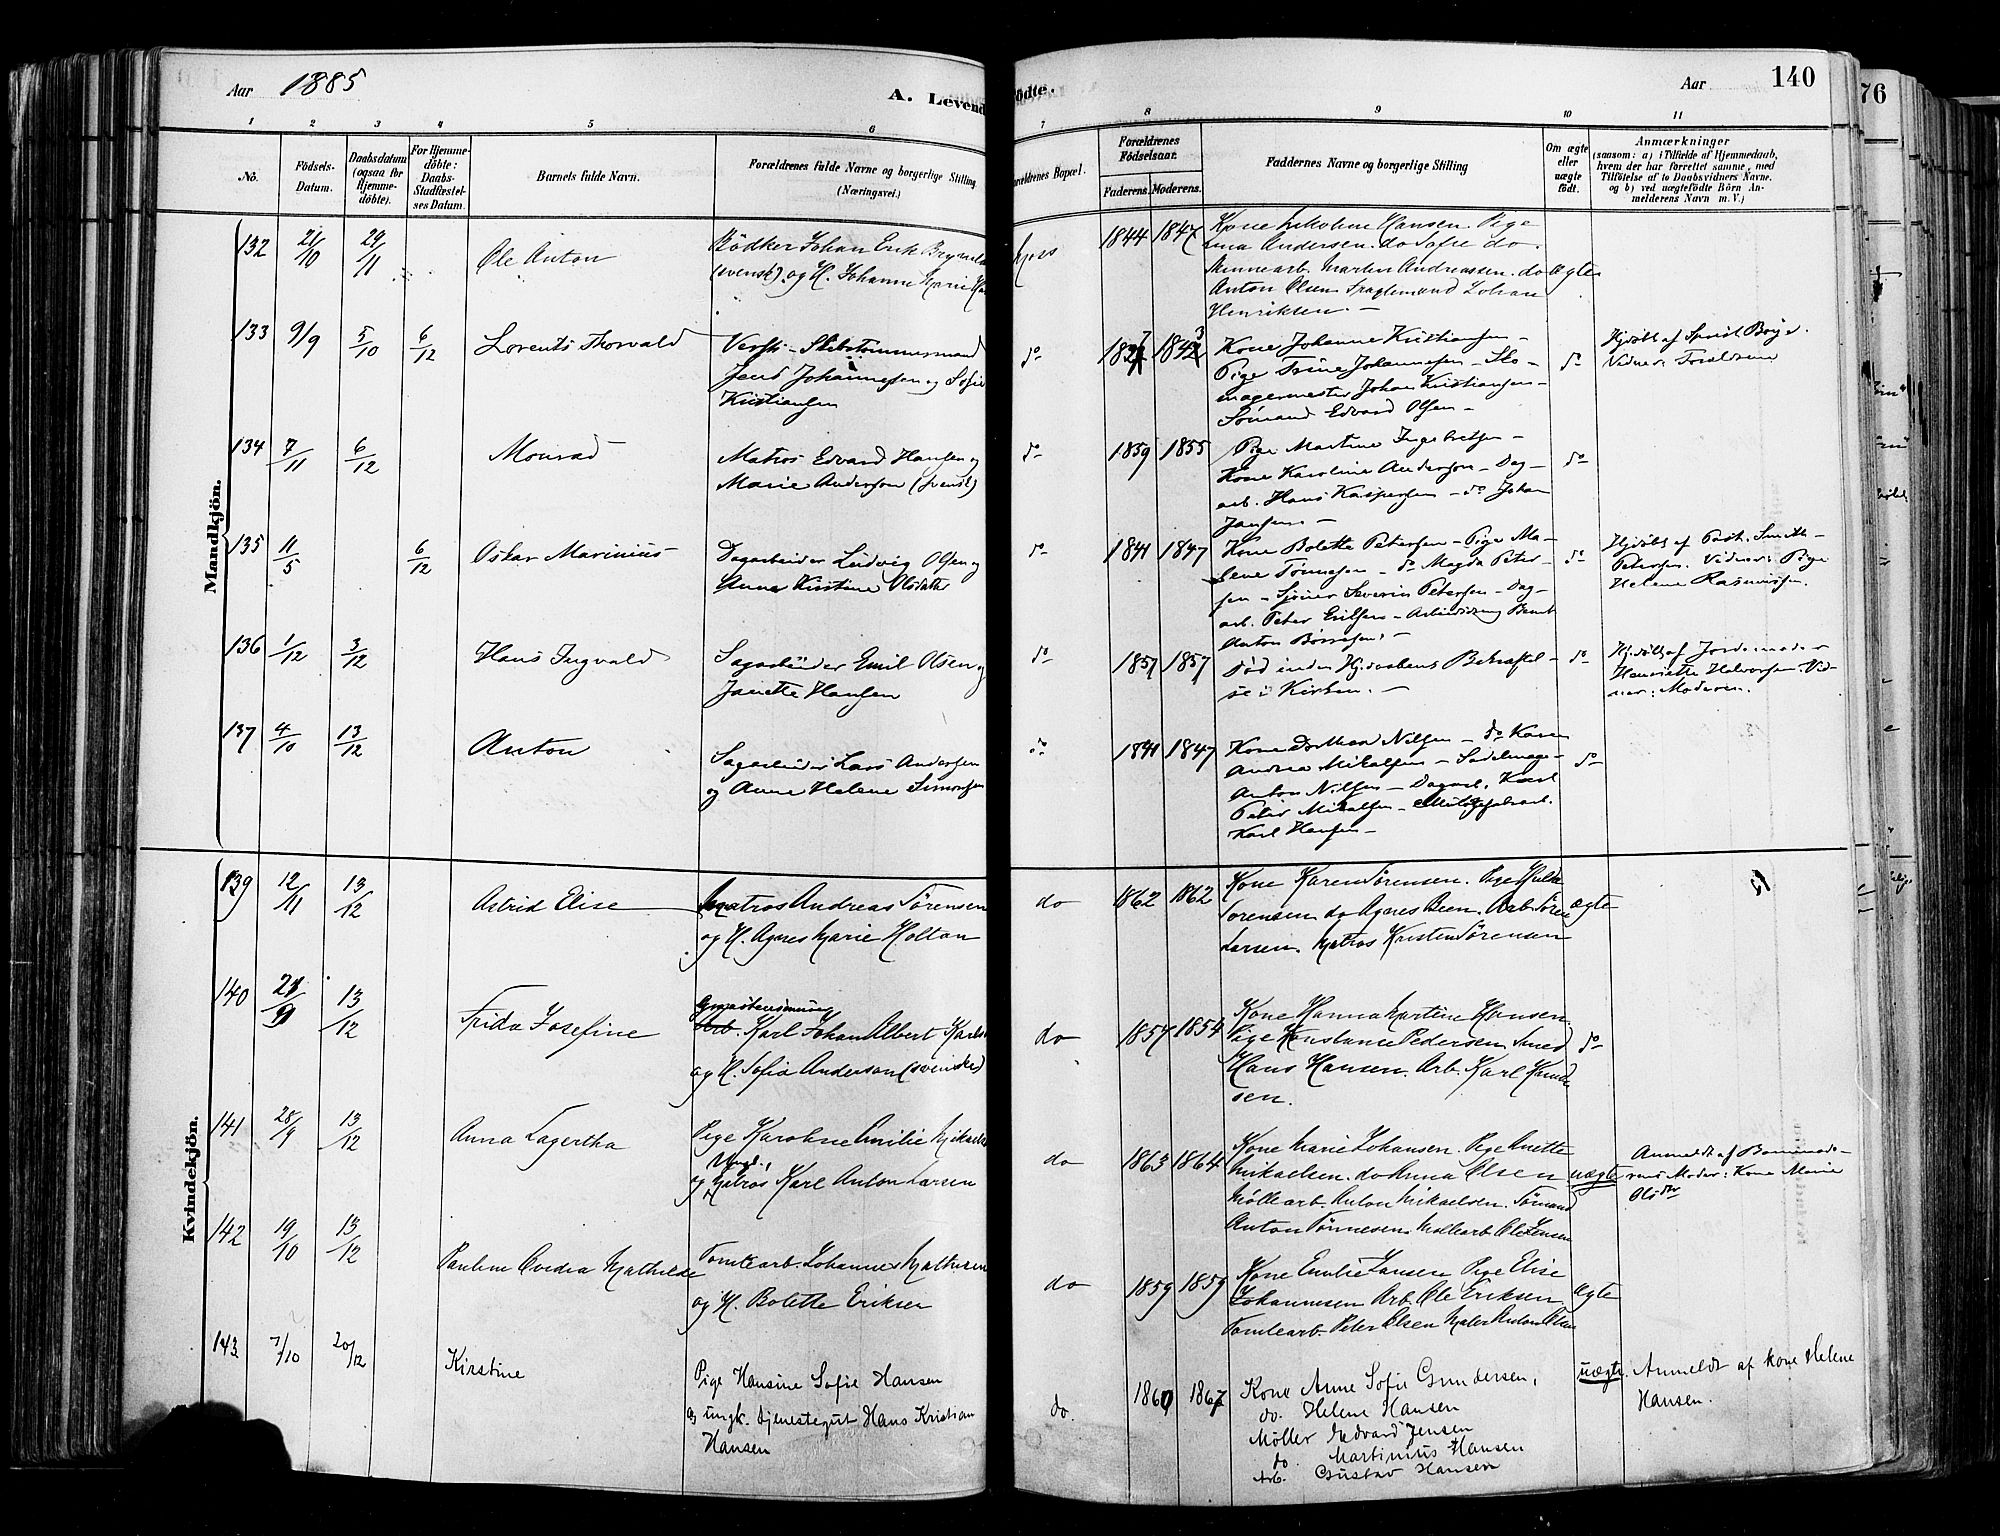 Aar 1885
A. Levend
ödte.
Aar
140
76
1 2 3 4 5 6 7 8 9 10 11
No.
Födsels-Datum.
Daabsdatum (ogsaa för Hjemme-döbte).
For Hjemme-döbte: Daabs-Stadfæstel-ses Datum.
Barnets fulde Navn.
Forældrenes fulde Navne og borgerlige Stilling
(Næringsvei.)
rældrenes Bopæl.
Forældrenes Födselsaar.
Faderens. Moderens.
Faddernes Navne og borgerlige Stilling
Om ægte eller uægte födt.
Anmærkninger
(saasom: a) i Tilfælde af Hjemmedaab,
hvem der har forrettet samme, med
Tilföielse af to Daabsvidners Navne,
og b) ved uægtefödte Börn An-
melderens Navn m. V.)
Mandkjön.
132 21/10 29/11 Ole Anton
Bödker Johan Erik
(svensk) og H. Johanne Marie
Moss 1844 1847
Kone Nikoline Hansen. Pige
Andersen. do Sofie do.
Martin Andreassen. do ægte
Anton Olsen Fragtemand Johan
Henriksen. —
133 9/9 5/10 6/12 Lorents Thorvald
Verfts - Skibstømmermand
Jens Johannesen og Sofie
Kristiansen
do 1843
Kone Johanne Kristiansen -
Pige Trine Johannesen - Sko-
magermester Johan Kristiansen -
Sömand Edvard Olsen -
do
Hjdöbt af
Vidner: Forældrene
134 7/11 6/12 Monrad
Matros Edvard Hansen og
Marie Andersen (svensk)
do 1859 1855
Pige Martine Ingebretsen -
Kone Karoline Andersen - Dag-
arb. Hans Kaspersen - do Johan
Jansen —
do
135 11/5 6/12 Oskar Marinius
Dagarbeider Ludvig Olsen og
Anne Kirstine Olsdatter
do 1841 1847
Kone Bolette Petersen - Pige Ma-
lene Tönnesen - do Magda Peter-
sen - Sjöner Severin Petersen - Dag-
arb. Peter Eriksen - Bernt
Anton Börresen. —
do
Hjdöbt af
Petersen. Vidner: Pige
Helene Rasmussen.
136 1/12 3/12 Hans Ingvald
Sagarbeider Emil Olsen og
Janette Hansen
do 1857 1857
Död inden Hjdaabens Bekræftel-
se i Kirken. —
do
Hjdöbt af Jordemoder
Henriette Halvorsen. Vid-
ner: Moderen.
137 4/10 13/12 Anton
Sagarbeider Lars Andersen
og Anne Helene Simonsen
do 1841 1847
Kone Nilsen - do Karen
Andrea Mikalsen - Sadelmager
Anton Nilsen - Dagarb. Karl
Peter Mikalsen -
Karl Hansen -
do
Kvindekjön.
139 12/11 13/12 Astrid Elise
Matros Andreas Sörensen
og H. Agnes Marie Holtan
do 1862 1862
Kone Karen Sörensen. Pige Hulda
Sörensen do Agnes Been. Arb. Sören
Larsen. Matros Karsten Sörensen
ægte
140 13/12 Frida Josefine
Arb. Karl Johan Albert Karls
og H. Sofia Anderson (svenske)
do 1857 1854
Kone Hanna Martine Hansen
Pige Konstance Pedersen Smed
Hans Hansen. Arb. Karl Knud
sen.
do
141 28/9 13/12 Anna Lagertha
Pige Karoline Emilie Mikaels
Ungk.
og Matros Karl Anton Larsen
do 1863 1864
Kone Marie Johansen. Pige Anette
Mikaelsen. do Anna Olsen
Möllearb. Anton Mikaelsen. Sömand
Anton Tönnesen. Möllearb Ole Jensen
uægte
Anmeldt af Barnemode-
rens Moder: Kone Marie
Olsdtr
142 19/10 13/12 Pauline Ovedia Mathilde
Tomtearb. Johannes Mathisen
og H. Bolette Eriksen
do 1859 1859
Kone Emilie Jansen Pige Elise
Johannesen Arb. Ole Eriksen
Tomtearb. Peter Olsen Maler Anton Olsen
ægte
143 7/10 20/12 Kirstine
Pige Hansine Sofie Hansen
og ungk. tjenestegut Hans Kristian
Hansen
do. 1860 1867
Kone Anne Sofie Gundersen,
do. Helene Hansen
Möller Edvard Jensen
do Martinius Hansen
Arb. Gustav Hansen
uægte.
Anmeldt af kone Helene
Hansen.